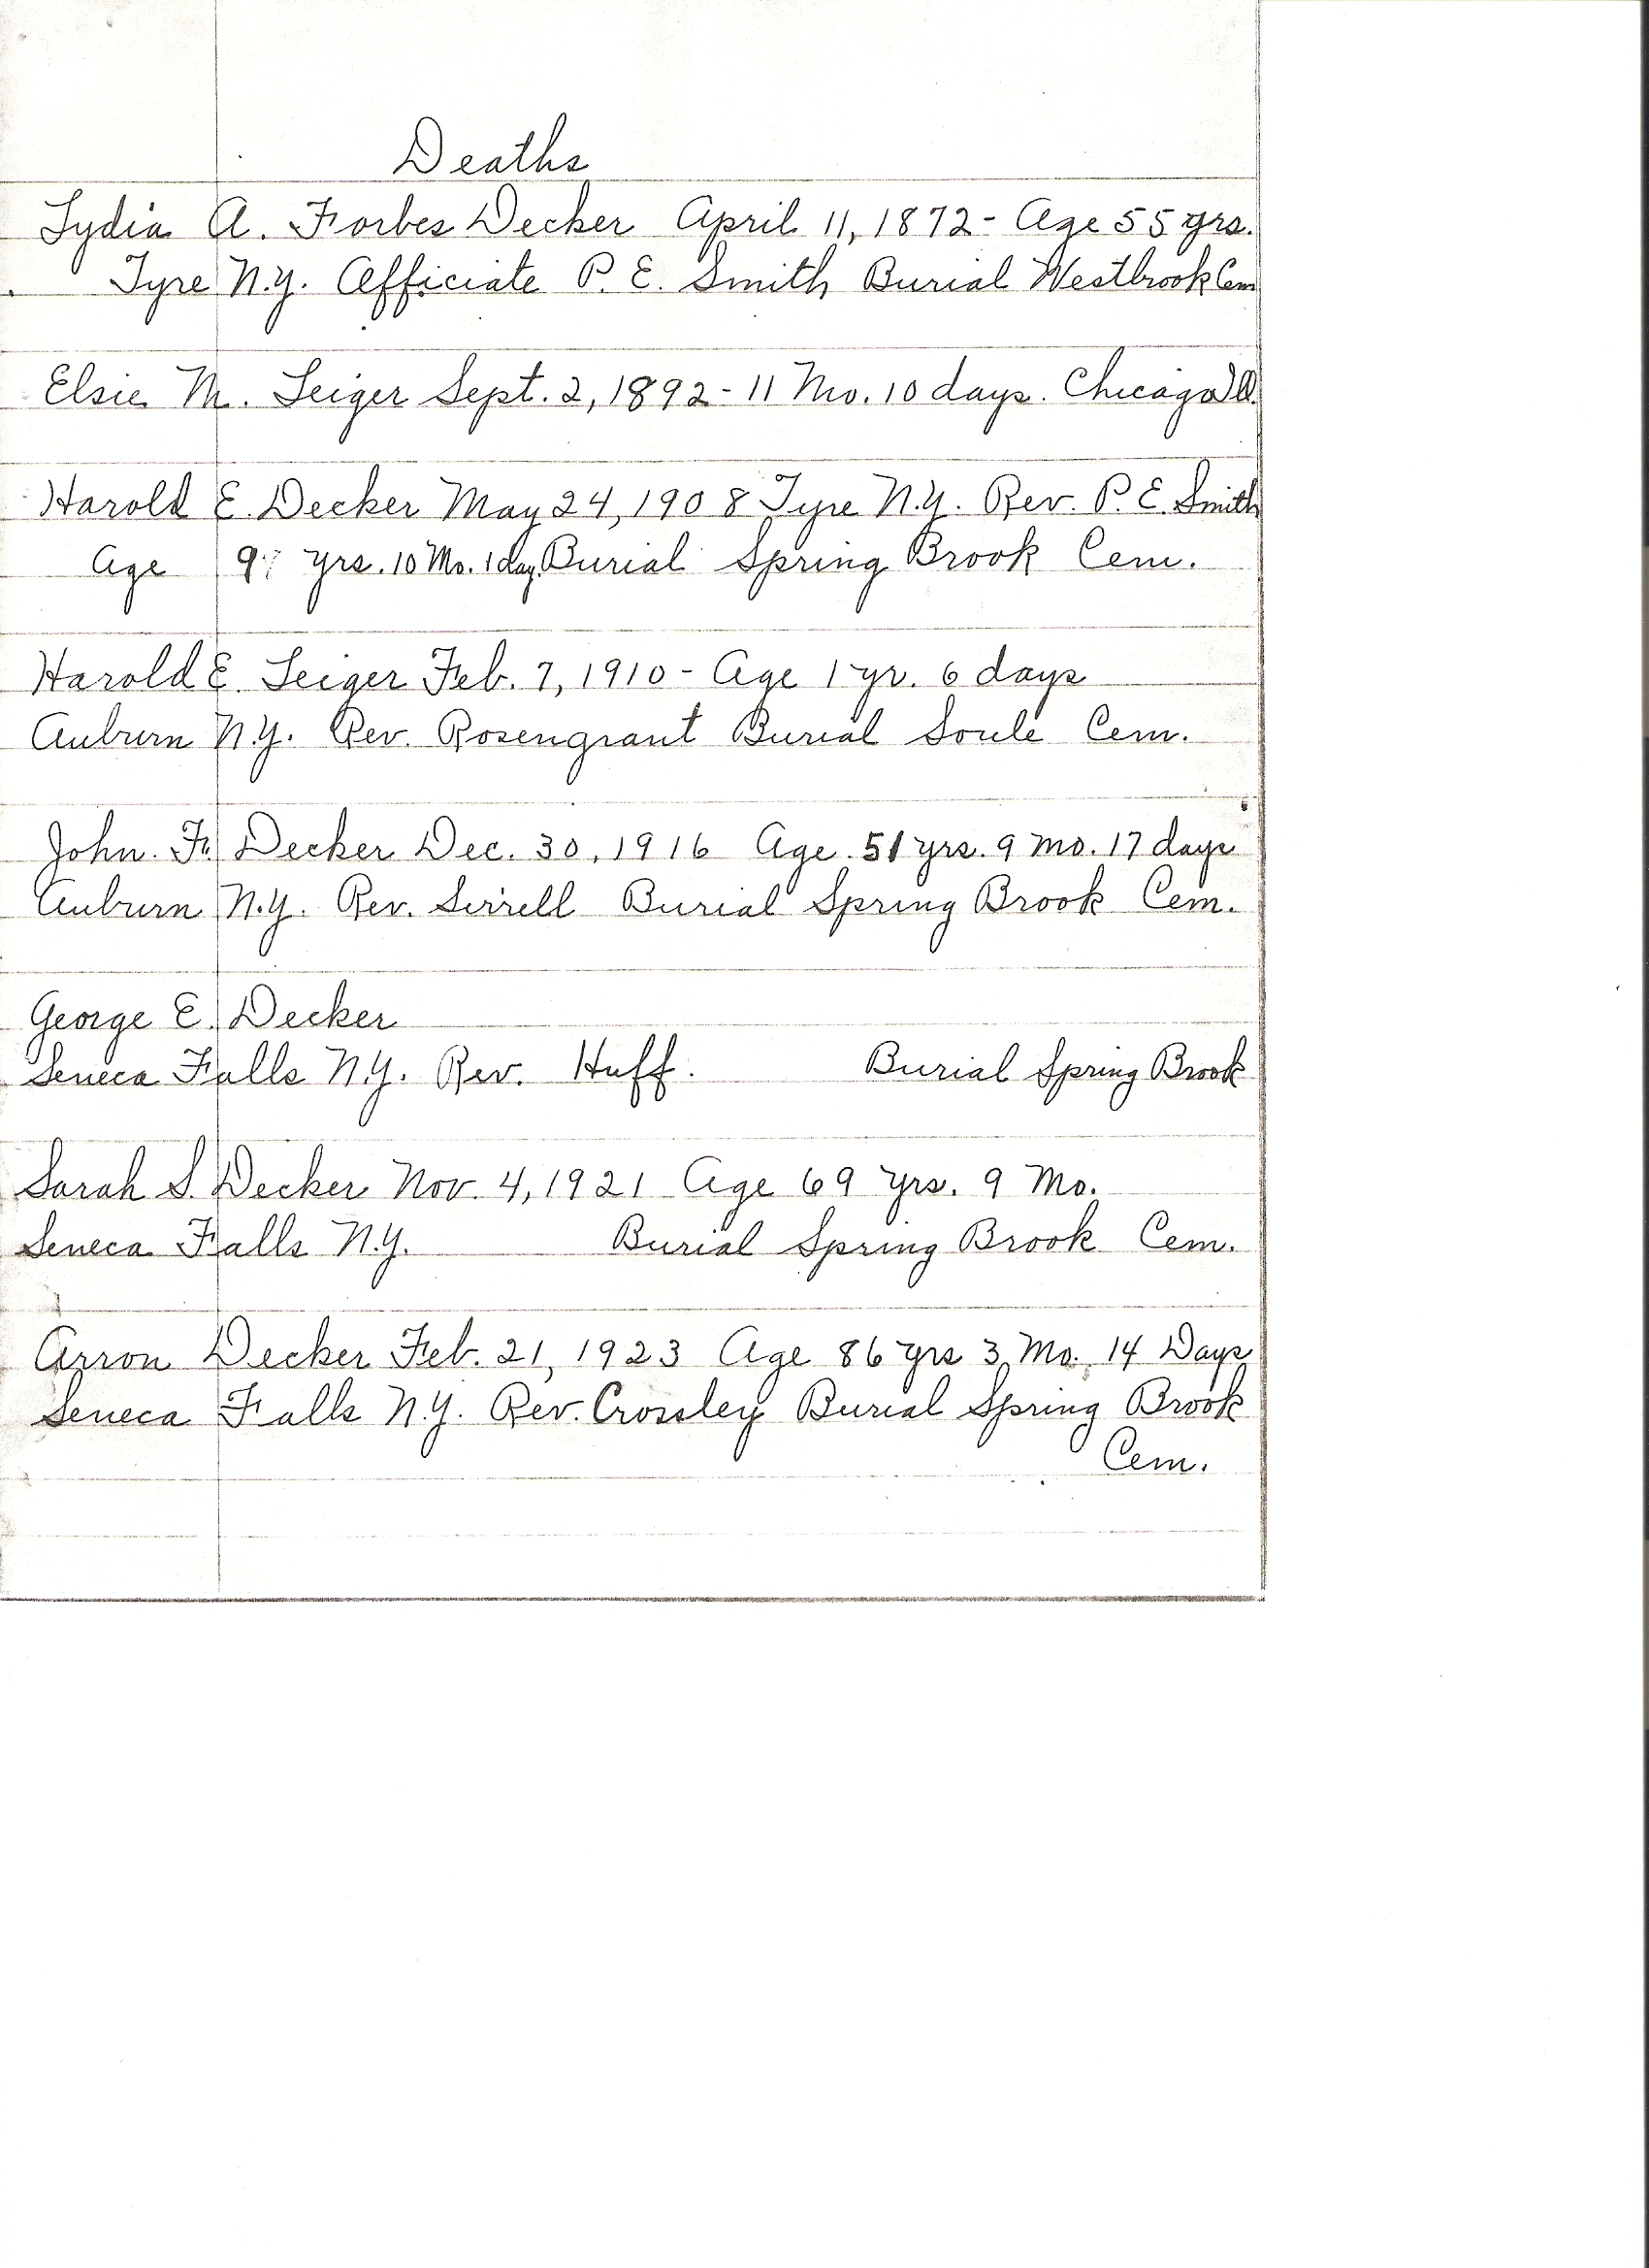 Deaths
Lydia A. Forbes Decker April 11, 1872 - Age 55 yrs.
Tyre N.Y. Afficiate P. E. Smith Burial Westbrook Cem
Elsie M. Seiger Sept. 2, 1892 - 11 Mo. 10 days. Chicago Ill.
Harold E. Decker May 24, 1908 Tyre N.Y. Rev. P. E. Smith
Age 9 yrs. 10 Mo. 1 day Burial Spring Brook Cem.
Harold E. Seiger Feb. 7, 1910 - Age 1 yr. 6 days
Auburn N.Y. Rev. Rosengrant Burial Soule Cem.
John. F. Decker Dec. 30, 1916 Age. 51 yrs. 9 Mo. 17 days
Auburn N.Y. Rev. Sirrell Burial Spring Brook Cem.
George E. Decker
Seneca Falls N.Y. Rev. Huff. Burial Spring Brook
Sarah S. Decker Nov. 4, 1921 Age 69 yrs. 9 Mo.
Seneca Falls N.Y. Burial Spring Brook Cem.
Arron Decker Feb. 21, 1923 Age 86 yrs 3 Mo. 14 Days
Seneca Falls N.Y. Rev. Crossley Burial Spring Brook
Cem.